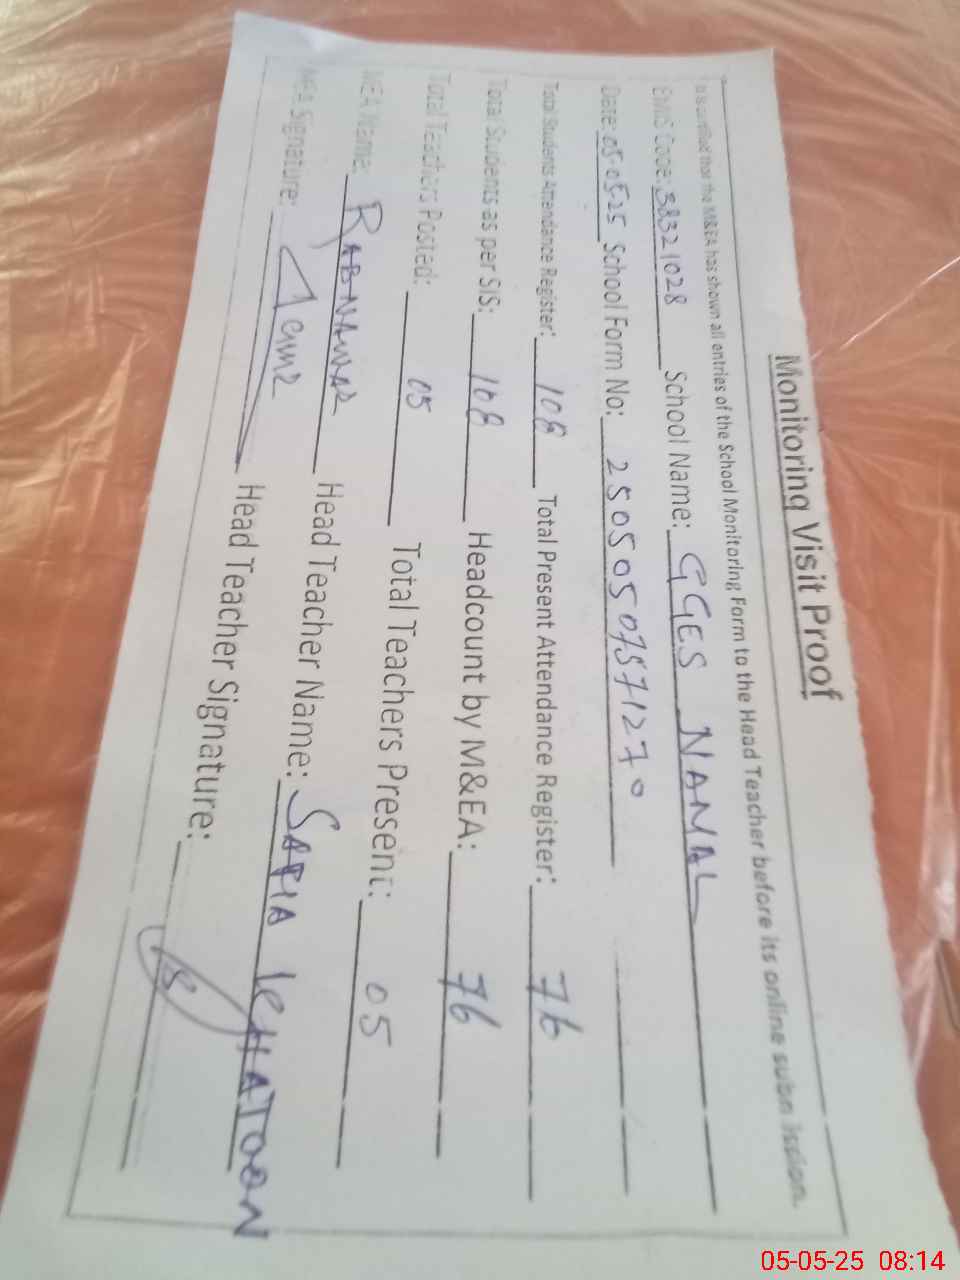 Monitoring Visit Proof
It is certified that the M&EA has shown all entries of the School Monitoring Form to the Head Teacher before its online submission.
EMIS Code: 38321028 School Name: GGES NAMAL
Date: 05-05-25 School Form No: 25050507571270
Total Students Attendance Register: 108 Total Present Attendance Register: 76
Total Students as per SIS: 108 Headcount by M&EA: 76
Total Teachers Posted: 05 Total Teachers Present: 05
MEA Name: RABNAWAZ Head Teacher Name: SAFIA KHATOON
MEA Signature: Head Teacher Signature:
05-05-25 08:14